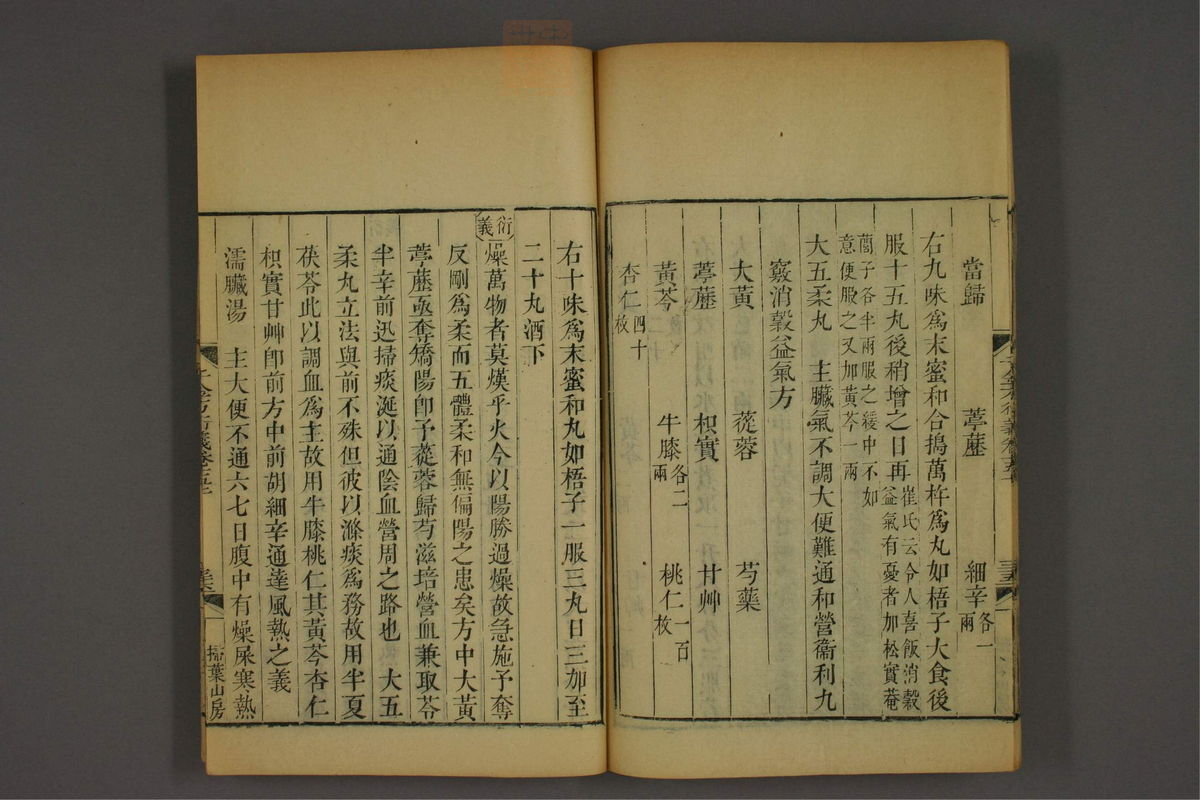 當歸　葶藶　細辛各一兩
右九味爲末蜜和合搗萬杵爲丸如梧子大食後
服十五丸後稍增之日再崔氏云令人喜飯消穀益氣有憂者加松實菴
䕡子各半兩服之緩中不如意便服之又加黃芩一兩
大五柔丸　主臟氣不調大便難通和營衛利九
竅消穀益氣方
大黃　蓯蓉　芍藥
葶藶　枳實　甘艸
黃芩　牛膝各二兩　桃仁一百枚
杏仁四十枚
右十味爲末蜜和丸如梧子一服三丸日三加至
二十丸酒下
衍義燥萬物者莫熯乎火今以陽勝過燥故急施予奪
反剛爲柔而五體柔和無偏陽之患矣方中大黃
葶藶亟奪矯陽卽予蓯蓉歸芍滋培營血兼取苓
半辛前迅掃痰涎以通陰血營周之路也　大五
柔丸立法與前不殊但彼以滌痰爲務故用半夏
茯苓此以調血爲主故用牛膝桃仁其黃芩杏仁
枳實甘艸卽前方中前胡細辛通達風熱之義
濡臟湯　主大便不通六七日腹中有燥屎寒熱
掃葉山房